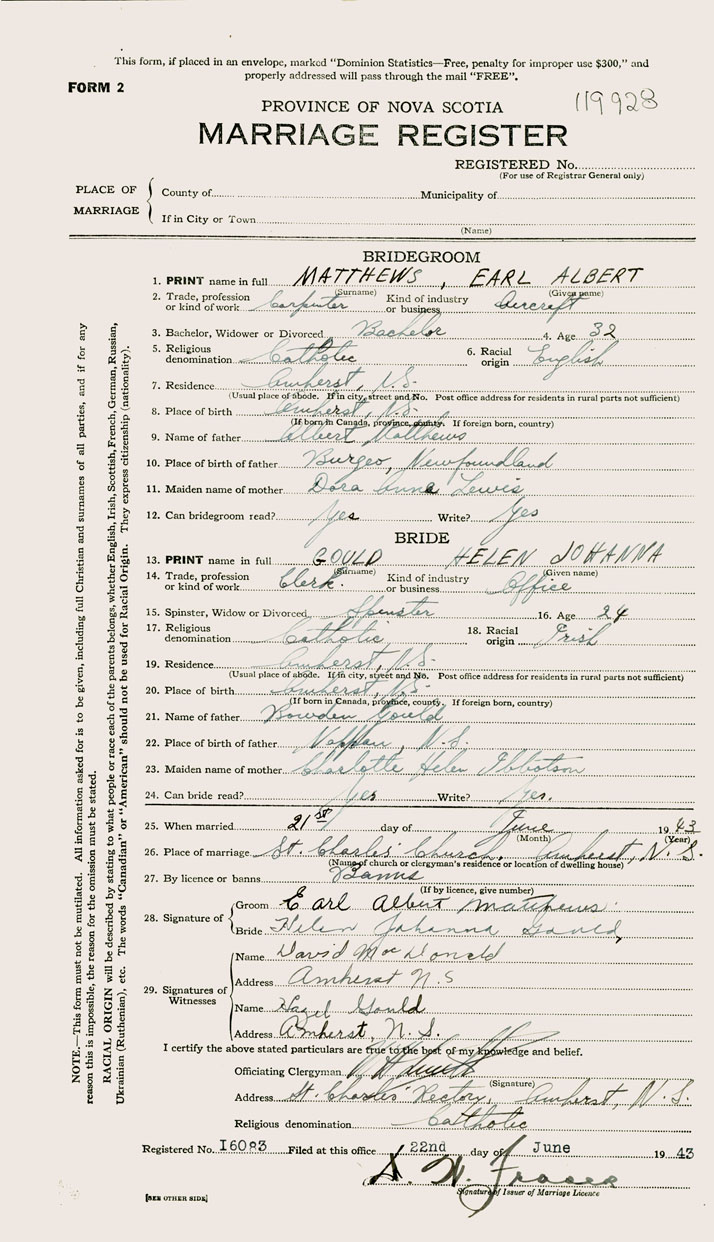 This form, if placed in an envelope, marked "Dominion Statistics—Free, penalty for improper use $300," and
properly addressed will pass through the mail "FREE".
FORM 2
119928
PROVINCE OF NOVA SCOTIA
MARRIAGE REGISTER
REGISTERED No.
(For use of Registrar General only)
PLACE OF MARRIAGE
County of Municipality of
If in City or Town
(Name)
BRIDEGROOM
1. PRINT name in full MATTHEWS, EARL ALBERT
(Surname) (Given name)
2. Trade, profession or kind of work Carpenter Kind of industry or business Aircraft
3. Bachelor, Widower or Divorced Bachelor 4. Age 32
5. Religious denomination Catholic 6. Racial origin English
7. Residence Amherst, N.S.
(Usual place of abode. If in city, street and No. Post office address for residents in rural parts not sufficient)
8. Place of birth Amherst, N.S.
(If born in Canada, province, county. If foreign born, country)
9. Name of father Albert Matthews
10. Place of birth of father Burgeo, Newfoundland
11. Maiden name of mother Dora Anna Lewis
12. Can bridegroom read? Yes Write? Yes
BRIDE
13. PRINT name in full GOULD HELEN JOHANNA
(Surname) (Given name)
14. Trade, profession or kind of work Clerk. Kind of industry or business Office
15. Spinster, Widow or Divorced Spinster 16. Age 24
17. Religious denomination Catholic 18. Racial origin Irish
19. Residence Amherst, N.S.
(Usual place of abode. If in city, street and No. Post office address for residents in rural parts not sufficient)
20. Place of birth Amherst, N.S.
(If born in Canada, province, county. If foreign born, country)
21. Name of father Bowden Gould
22. Place of birth of father Nappan, N.S.
23. Maiden name of mother Charlotte Helen Ibbotson
24. Can bride read? Yes Write? Yes.
25. When married 21st day of June 1943
(Month) (Year)
26. Place of marriage St. Charles' Church, Amherst, N.S.
(Name of church or clergyman's residence or location of dwelling house)
27. By licence or banns Banns
(If by licence, give number)
28. Signature of
Groom Earl Albert Matthews
Bride Helen Johanna Gould
29. Signatures of Witnesses
Name David MacDonald
Address Amherst N.S
Name Hazel Gould
Address Amherst, N.S.
I certify the above stated particulars are true to the best of my knowledge and belief.
Officiating Clergyman
(Signature)
Address St. Charles' Rectory, Amherst, N.S.
Religious denomination Catholic
Registered No. 16083 Filed at this office 22nd day of June 1943
Signature of Issuer of Marriage Licence
[SEE OTHER SIDE]
NOTE.—This form must not be mutilated. All information asked for is to be given, including full Christian and surnames of all parties, and if for any
reason this is impossible, the reason for the omission must be stated.
RACIAL ORIGIN will be described by stating to what people or race each of the parents belongs, whether English, Irish, Scottish, French, German, Russian,
Ukrainian (Ruthenian), etc. The words "Canadian" or "American" should not be used for Racial Origin. They express citizenship (nationality).